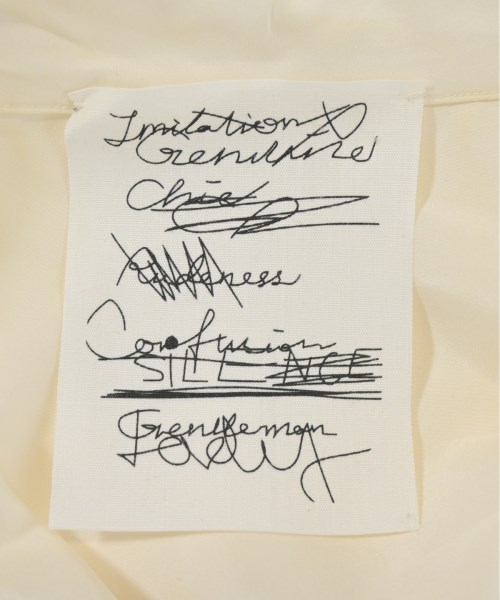 Imitation
Genuine
Chic
Rudeness
Confusion
SILENCE
Gentleman